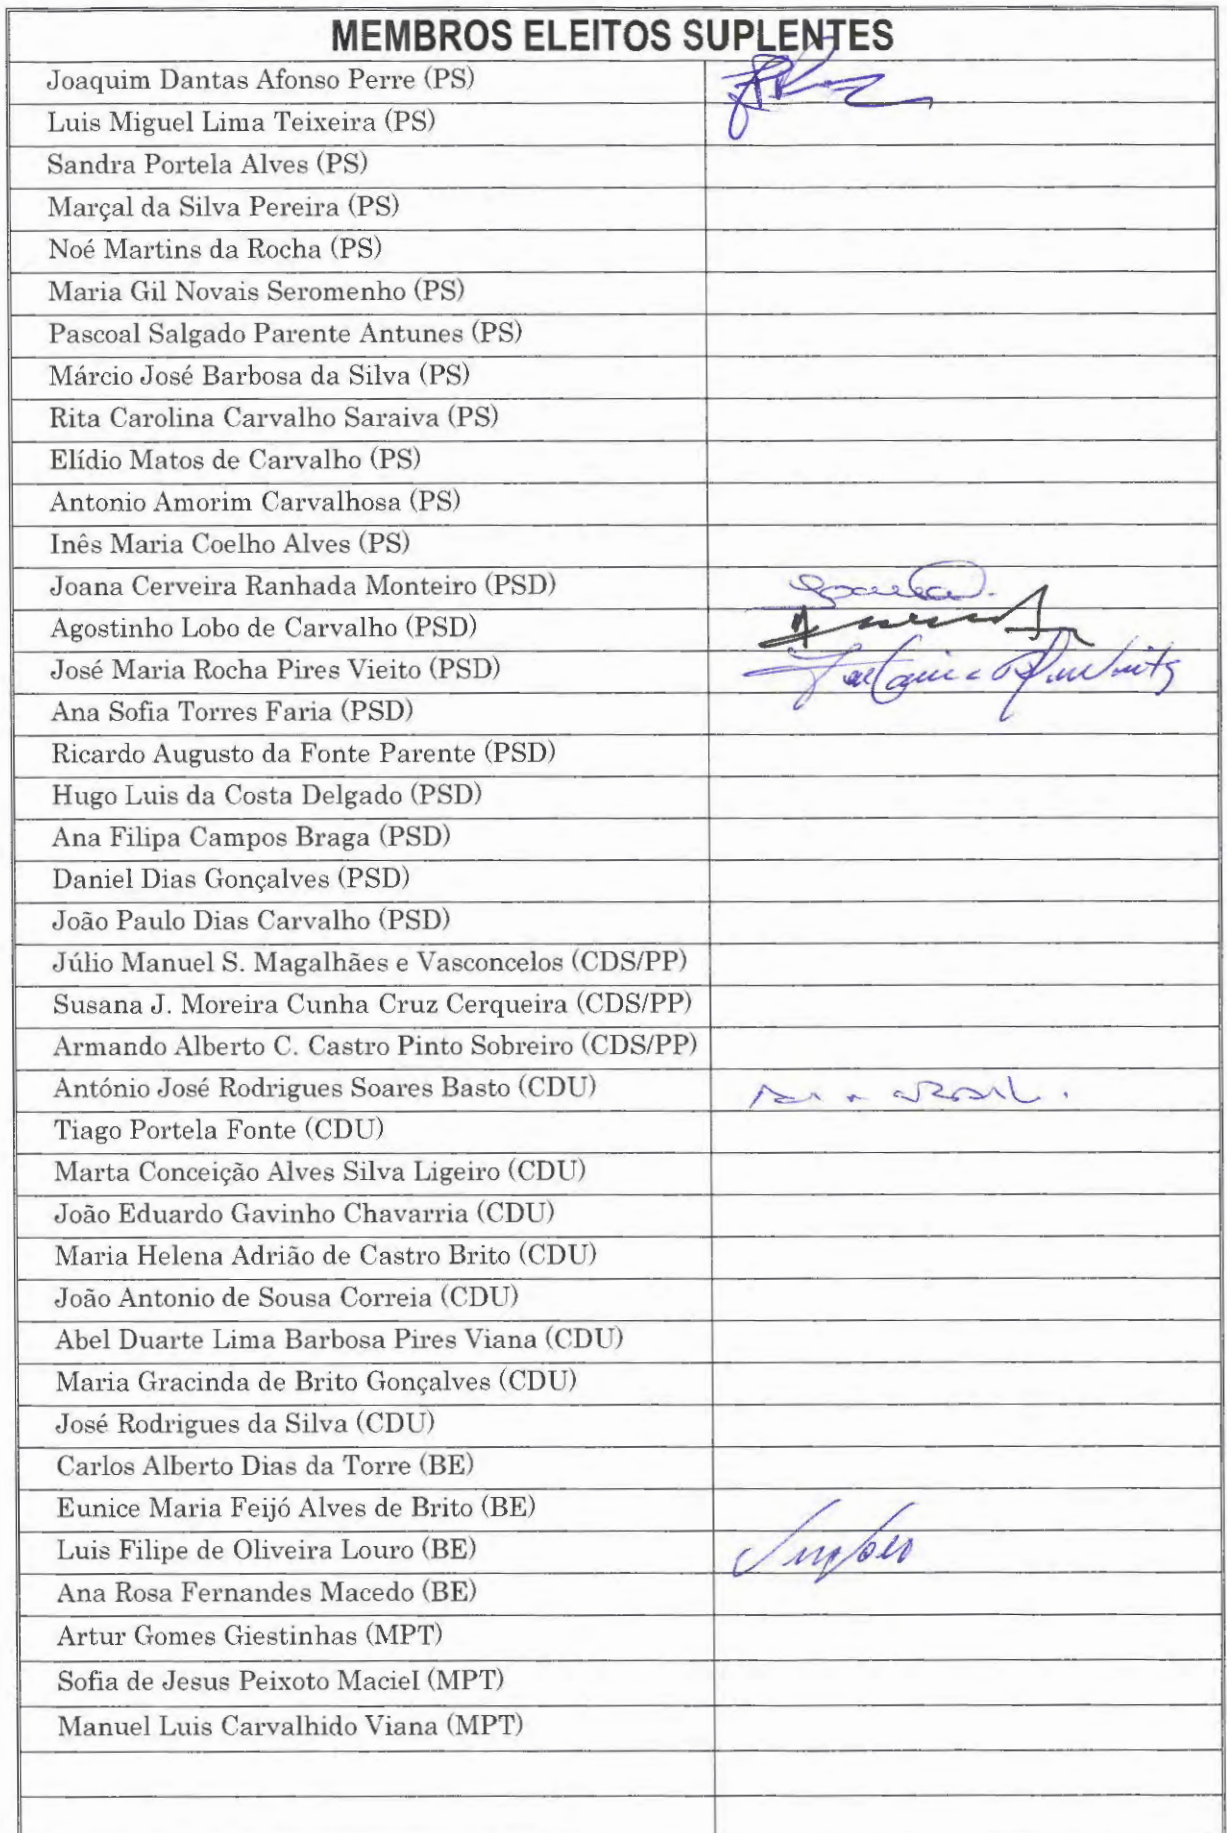 MEMBROS ELEITOS SUPLENTES
Joaquim Dantas Afonso Perre (PS)
Luis Miguel Lima Teixeira (PS)
Sandra Portela Alves (PS)
Marçal da Silva Pereira (PS)
Noé Martins da Rocha (PS)
Maria Gil Novais Seromenho (PS)
Pascoal Salgado Parente Antunes (PS)
Márcio José Barbosa da Silva (PS)
Rita Carolina Carvalho Saraiva (PS)
Elídio Matos de Carvalho (PS)
Antonio Amorim Carvalhosa (PS)
Inês Maria Coelho Alves (PS)
Joana Cerveira Ranhada Monteiro (PSD)
Agostinho Lobo de Carvalho (PSD)
José Maria Rocha Pires Vieito (PSD)
Ana Sofia Torres Faria (PSD)
Ricardo Augusto da Fonte Parente (PSD)
Hugo Luis da Costa Delgado (PSD)
Ana Filipa Campos Braga (PSD)
Daniel Dias Gonçalves (PSD)
João Paulo Dias Carvalho (PSD)
Júlio Manuel S. Magalhães e Vasconcelos (CDS/PP)
Susana J. Moreira Cunha Cruz Cerqueira (CDS/PP)
Armando Alberto C. Castro Pinto Sobreiro (CDS/PP)
António José Rodrigues Soares Basto (CDU)
Tiago Portela Fonte (CDU)
Marta Conceição Alves Silva Ligeiro (CDU)
João Eduardo Gavinho Chavarria (CDU)
Maria Helena Adrião de Castro Brito (CDU)
João Antonio de Sousa Correia (CDU)
Abel Duarte Lima Barbosa Pires Viana (CDU)
Maria Gracinda de Brito Gonçalves (CDU)
José Rodrigues da Silva (CDU)
Carlos Alberto Dias da Torre (BE)
Eunice Maria Feijó Alves de Brito (BE)
Luis Filipe de Oliveira Louro (BE)
Ana Rosa Fernandes Macedo (BE)
Artur Gomes Giestinhas (MPT)
Sofia de Jesus Peixoto Maciel (MPT)
Manuel Luis Carvalhido Viana (MPT)